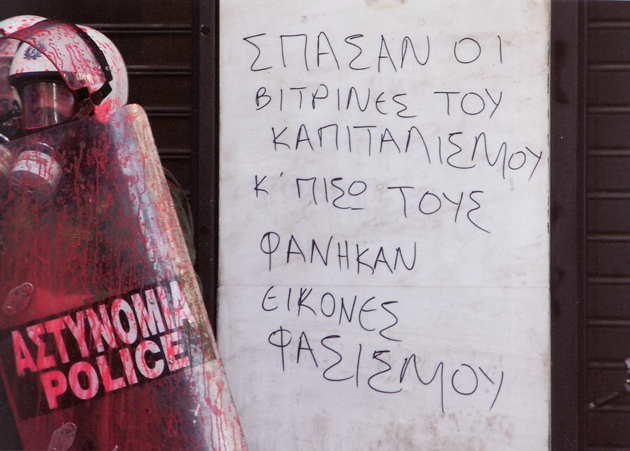 ΣΠΑΣΑΝ ΟΙ
ΒΙΤΡΙΝΕΣ ΤΟΥ
ΚΑΠΙΤΑΛΙΣΜΟΥ
Κ' ΠΙΣΩ ΤΟΥΣ
ΦΑΝΗΚΑΝ
ΕΙΚΟΝΕΣ
ΦΑΣΙΣΜΟΥ
ΑΣΤΥΝΟΜΙΑ
POLICE